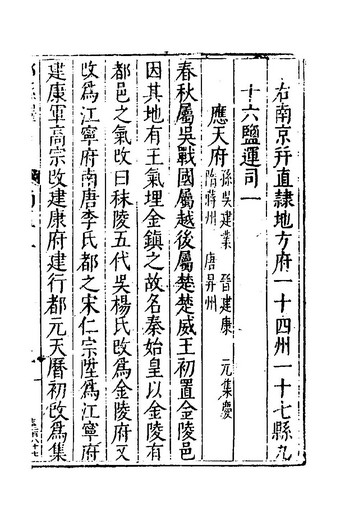 右南京并直隸地方府一十四州一十七縣九
十六鹽運司一
應天府 孫吳建業 晉建康 元集慶
隋蔣州 唐昇州
春秋屬吳戰國屬越後屬楚楚威王初置金陵邑
因其地有王氣埋金鎮之故名秦始皇以金陵有
都邑之氣改曰秣陵五代吳楊氏改為金陵府又
改為江寧府南唐李氏都之宋仁宗陞為江寧府
建康軍高宗改建康府建行都元天曆初改為集